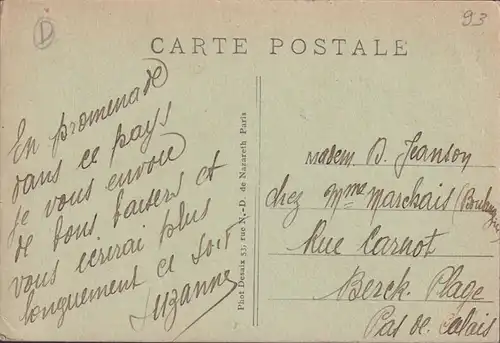 D
93
CARTE POSTALE
En promenade
dans ce pays
je vous envoie
de bons baisers et
vous écrirai plus
longuement ce soir
Suzanne
Phot Desaix 53, rue N.-D. de Nazareth Paris
Madem. D. Jeanson
chez Mme Marchais
Rue Carnot
Berck. Plage
Pas de Calais